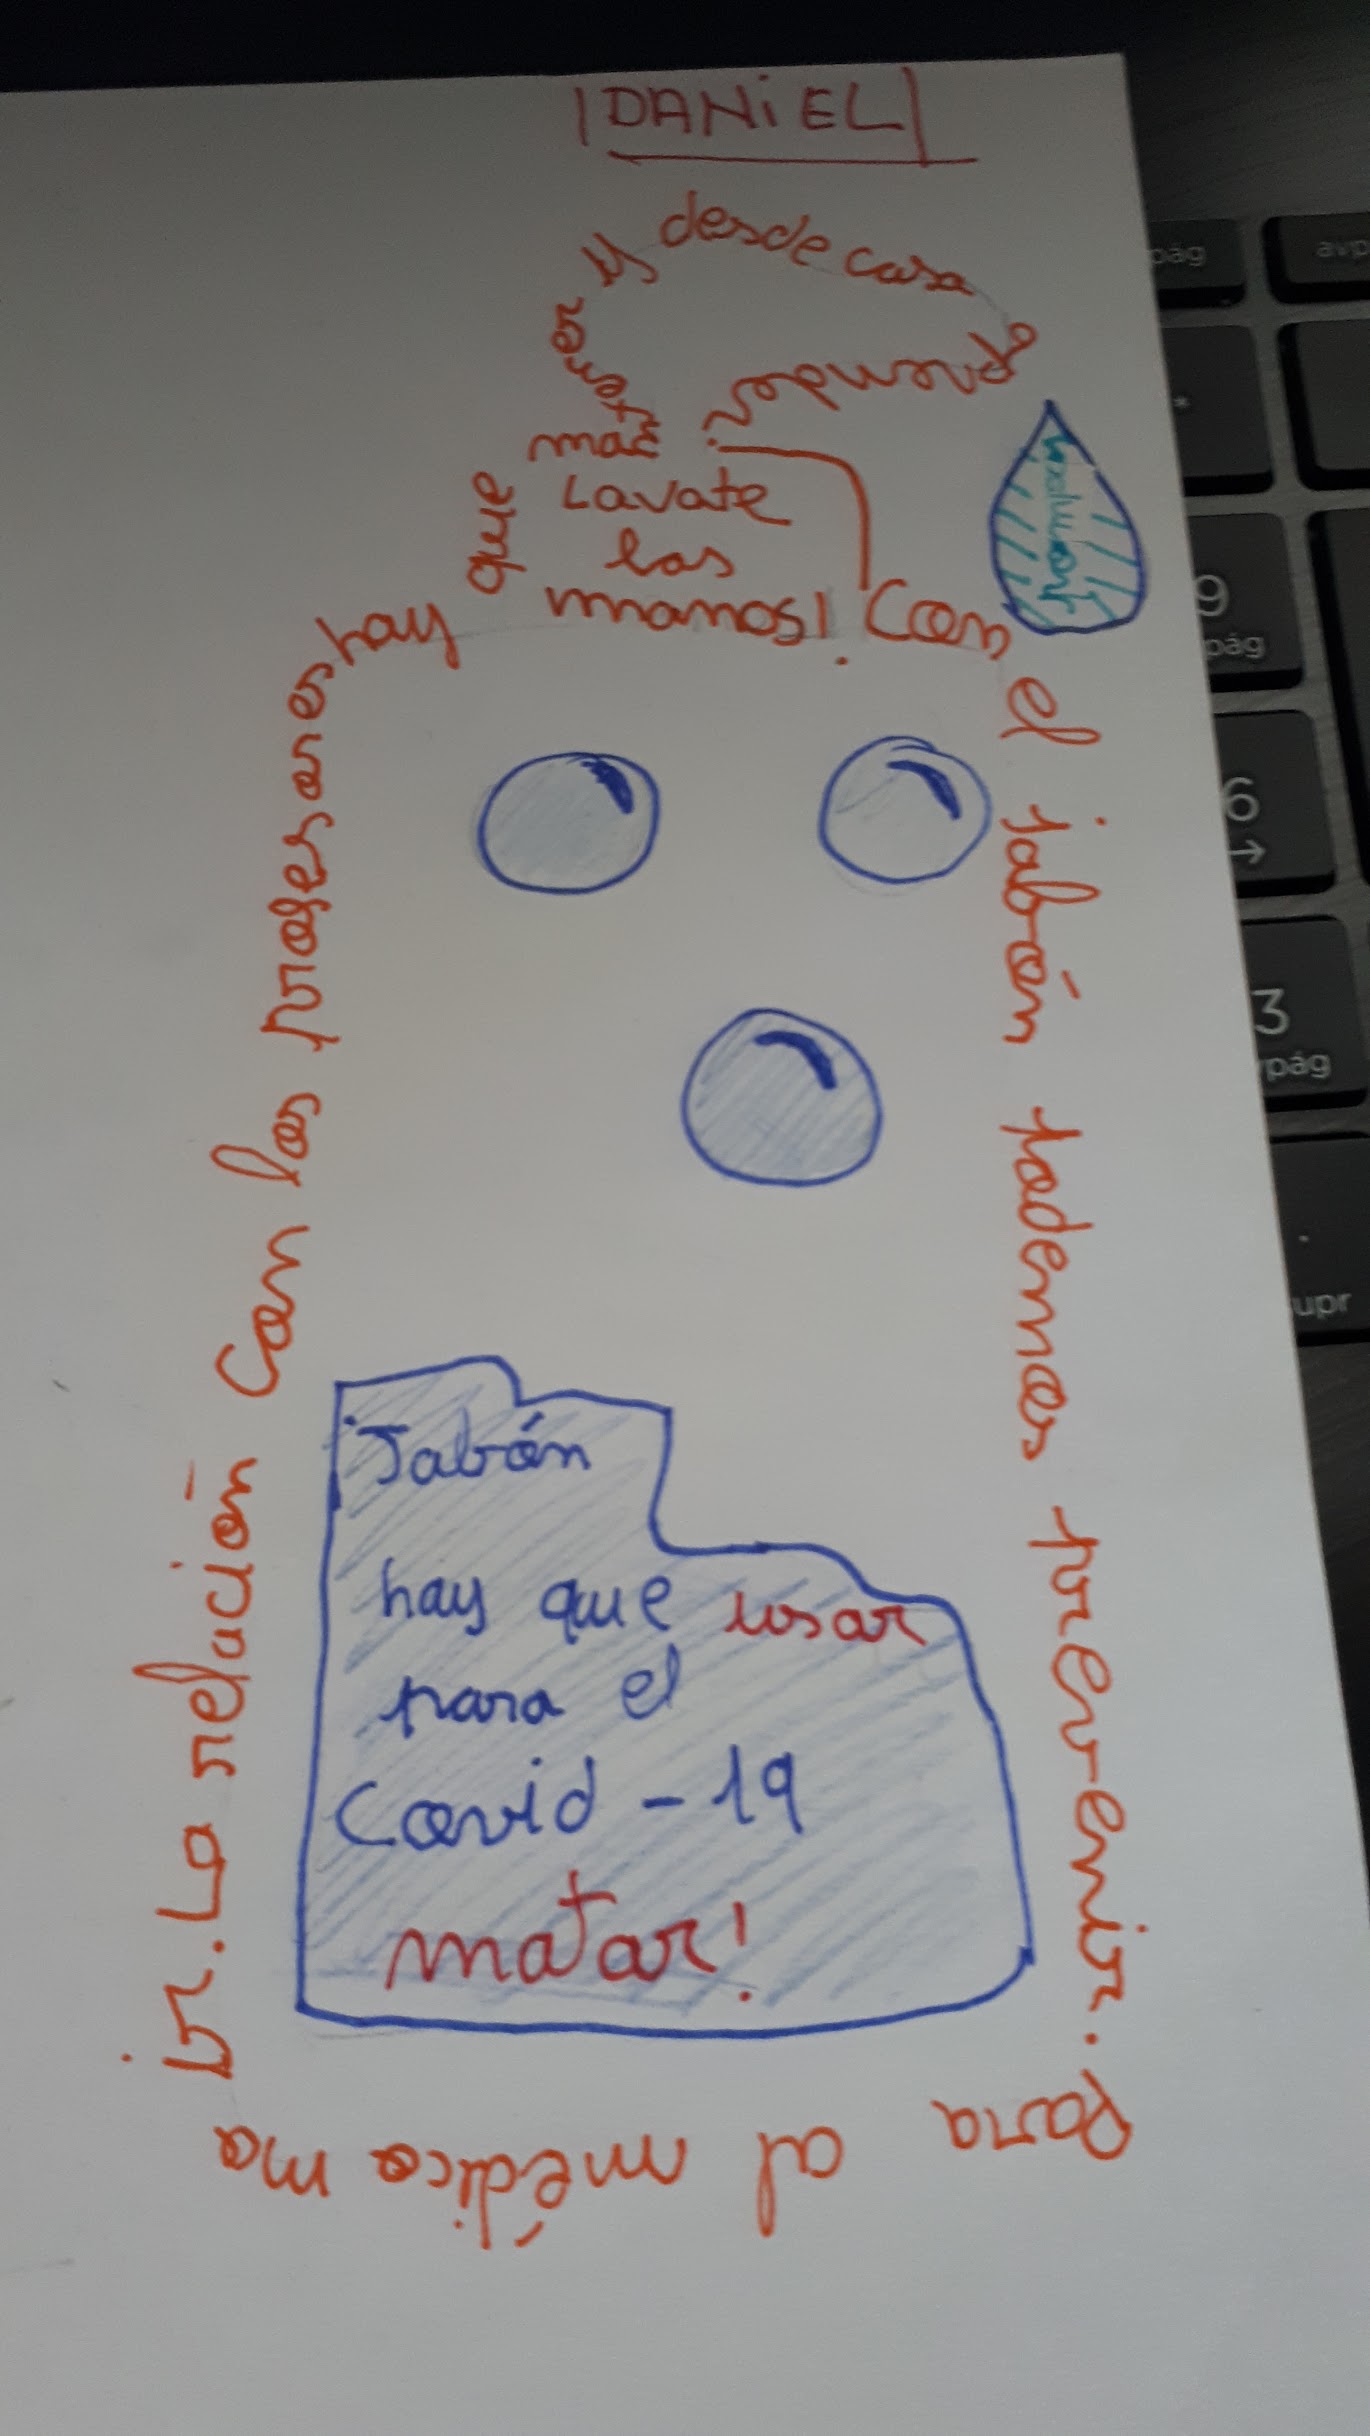 DANiEL
Lavate
las
manos!
Con el jabón podemos prevenir.
Para al médico no
ir. La relación Con los profesores
hay que
mantener y desde casa
aprende
Jabón
hay que usar
para el
Covid - 19
matar!
pág
9
pág
6
→
3